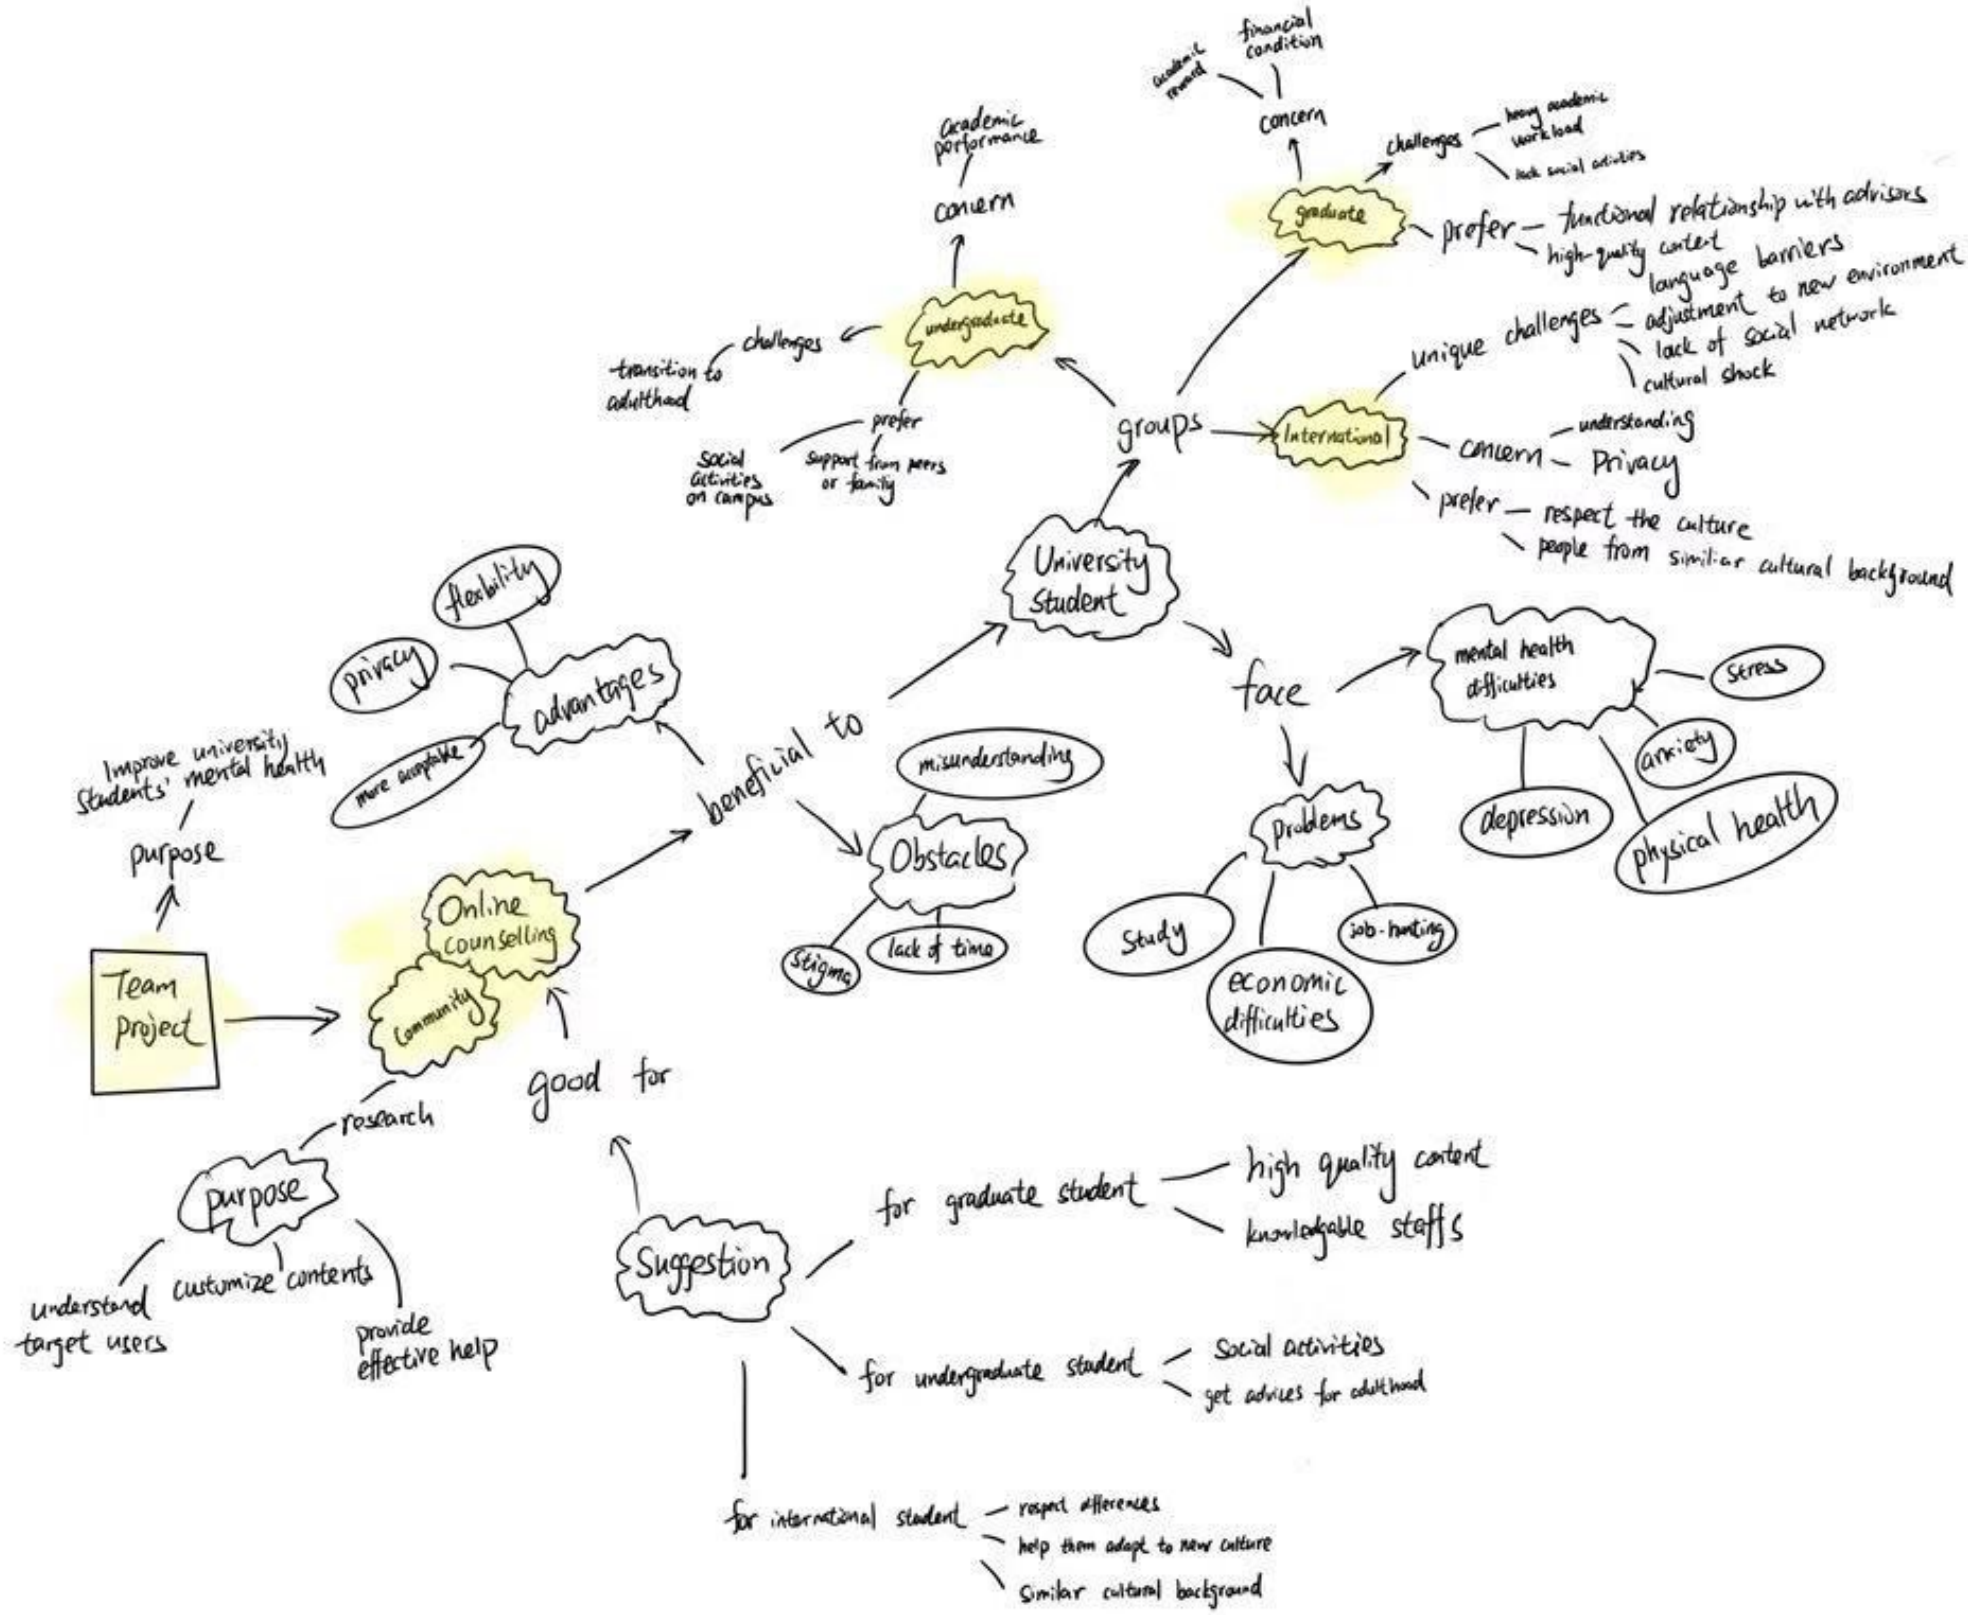 financial
condition
academic
reward
concern
challenges
heavy academic
workload
lack social activities
graduate
prefer
functional relationship with advisors
high-quality content
academic
performance
concern
undergraduate
challenges
transition to
adulthood
prefer
social
activities
on campus
support from peers
or family
groups
International
unique challenges
language barriers
adjustment to new environment
lack of social network
cultural shock
concern
understanding
Privacy
prefer
respect the culture
people from similiar cultural background
University
Student
face
mental health
difficulties
stress
anxiety
depression
physical health
problems
study
economic
difficulties
job-hunting
flexibility
privacy
more acceptable
advantages
beneficial to
misunderstanding
Obstacles
stigma
lack of time
Improve university
students' mental health
purpose
Team
project
Online
counselling
Community
research
purpose
understand
target users
custumize contents
provide
effective help
good for
Suggestion
for graduate student
high quality content
knowledgable staffs
for undergraduate student
Social activities
get advices for adulthood
for international student
respect differences
help them adapt to new culture
Similar cultural background